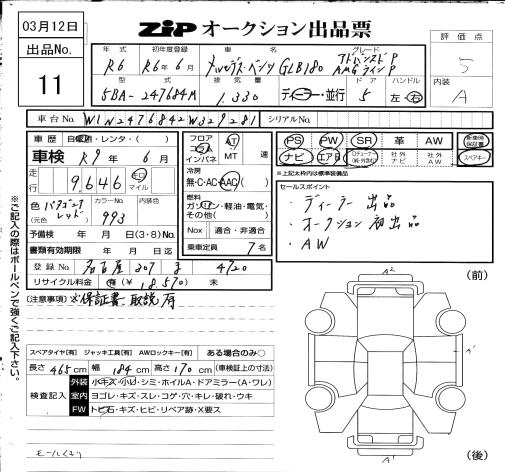 03月12日
出品No.
11
ZiP オークション出品票
評価点
5
内装
A
年式 初年度登録 車名 グレード
R6 R6年6月 メルセデス・ベンツ GLB180 アドバンスドP AMGラインP
型式 排気量 ドア ハンドル
5BA-247684M 1.330 ディーラー・並行 5 左・右
車台No. W1N2476842W329281 シリアルNo.
車歴 自家用・レンタ・( )
車検 R9年6月
走行 9,646 キロ マイル
色(元色) パタゴニアレッド カラーNo. 993 内装色
予備検 年 月 日(3・8)No.
書類有効期限 年 月 日迄
登録No. 名古屋 307 ま 4720
リサイクル料金 有(¥18,570) 未
フロア コラム インパネ AT MT 速
冷房 無・C・AC・AAC( )
燃料 ガソリン・軽油・電気・その他( )
Nox 適合・非適合
乗車定員 7名
PS PW SR 革 AW 新車時保証書
ナビ エアB 社外ナビ 社外AW スペアキー
※上記太枠内は標準装備品
セールスポイント
・ディーラー出品
・オークション初出品
・AW
(注意事項)※保証書、取説有
スペアタイヤ[有] ジャッキ工具[有] AWロックキー[有] ある場合のみ○
長さ465cm 幅184cm 高さ170cm(車検証上の寸法)
検査記入
外装 小キズ・小凹・シミ・ホイルA・ドアミラー(A・ワレ)
室内 ヨゴレ・キズ・スレ・コゲ・穴・キレ・破れ・ウキ
FW トビ石・キズ・ヒビ・リペア跡・X要ス
モールくもり
※ご記入の際はボールペンで強くご記入下さい。
(前)
A2
A'
A2
(後)